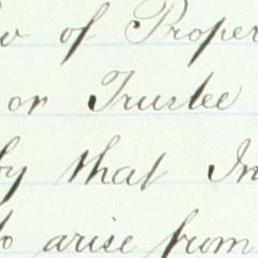 of Proper
or Trustee
by that In
to arise from